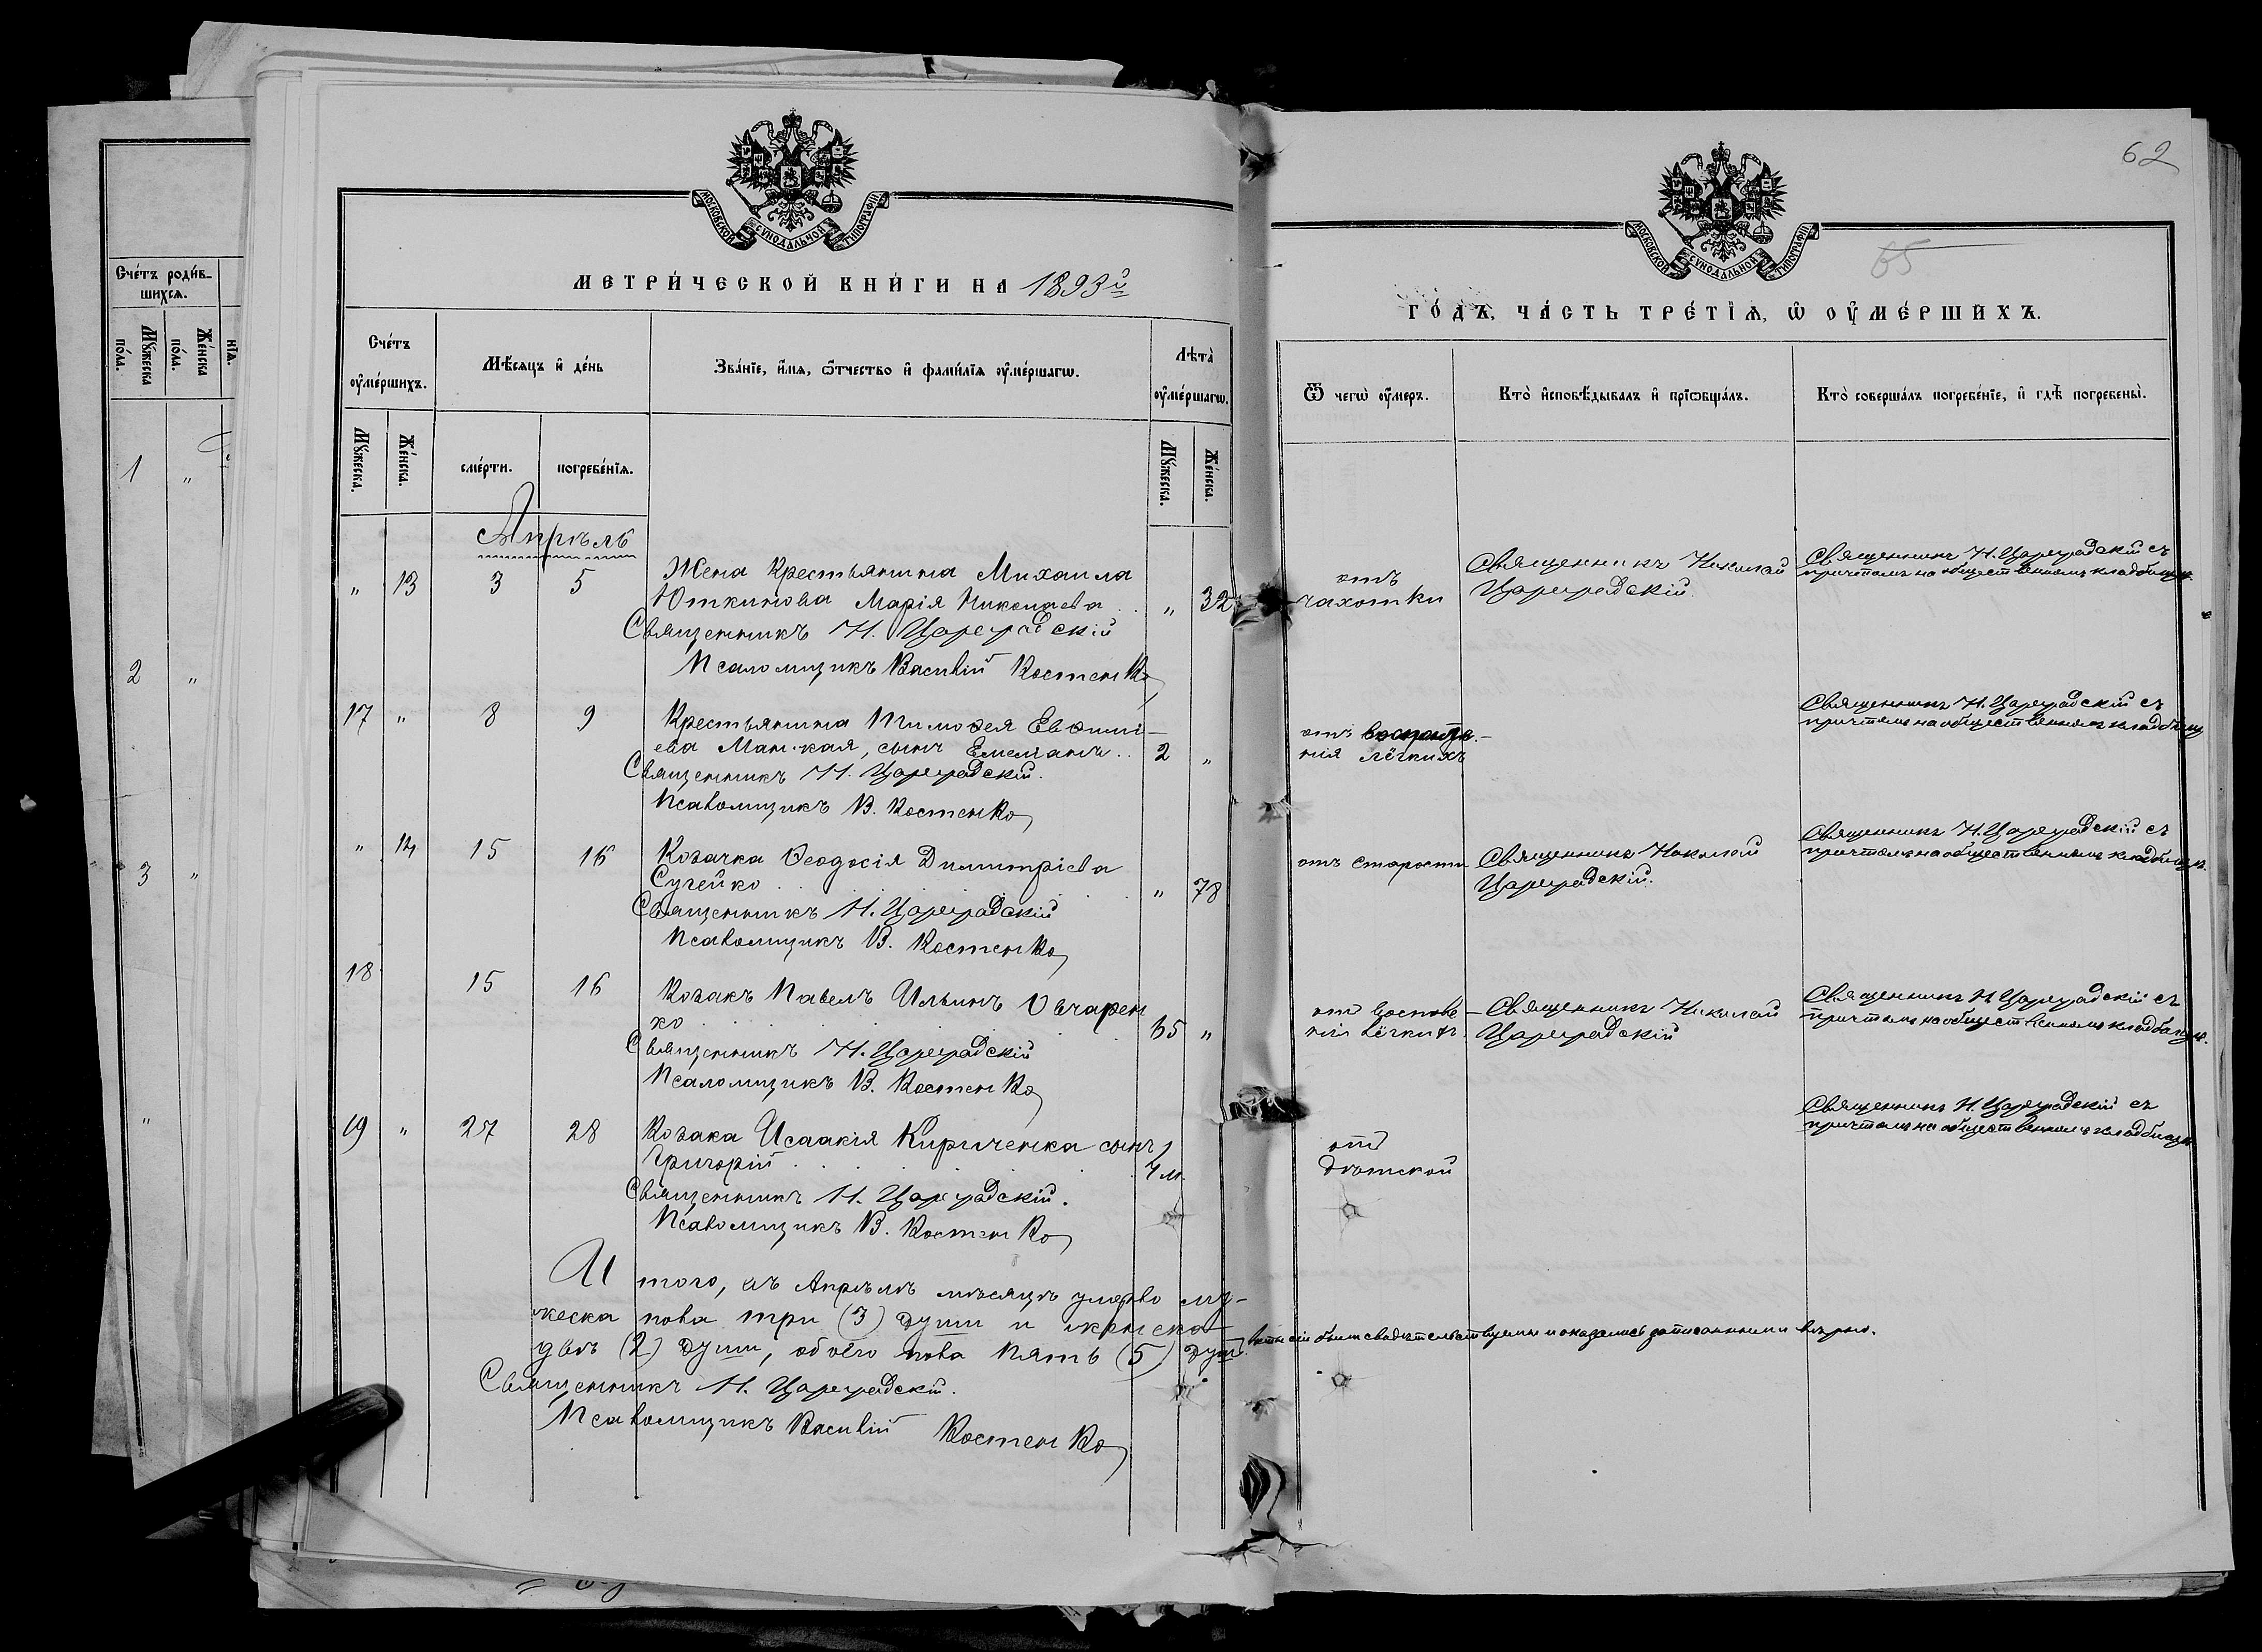 Счéтъ роди́в-
шихся.
Мꙋ́жеска
по́ла.
Же́нска
по́ла.
нїѧ.
1 "
2 "
3 "
"
МОСКОВСКОЙ СѴНОДАЛЬНОЙ ТИПОГРАФІИ
МЕТРИ́ЧЕСКОЙ КНИ́ГИ НА 1893й
Сче́тъ
оу҆ме́ршихъ.
Мꙋ́жеска.
Же́нска.
Мѣ́сяцъ и҆ де́нь
сме́рти.
погребе́нїѧ.
Зва́нїе, и҆́мѧ, ѻ҆́тчество и҆ фами́лїѧ оу҆ме́ршагѡ.
Лѣта̀
оу҆ме́ршагѡ.
Мꙋ́жеска.
Же́нска.
Апрѣль
" 13 3 5 Жена Крестьянина Михаила
Юткинова Марія Николаева . . " 32
Священникъ Н. Цареградскій
Псаломщикъ Василій Костенко
17 " 8 9 Крестьянина Тимофея Евфимі-
ева сынъ Емелянъ . . 2 "
Священникъ Н. Цареградскій.
Псаломщикъ В. Костенко
" 14 15 16 Козачка Ѳеодосія Димитріева
Сугейко . . . " 78
Священникъ Н. Цареградскій
Псаломщикъ В. Костенко
18 15 16 Козакъ Павелъ Ильинъ Овчарен
ко . . . 65 "
Священникъ Н. Цареградскій
Псаломщикъ В. Костенко
19 " 27 28 Козака Исаакія Кириченка сынъ
Григорій . . . 4 м.
Священникъ Н. Цареградскій.
Псаломщикъ В. Костенко
Итого, въ Апрѣлѣ мѣсяцѣ умерло му-
жеска пола три (3) души и женска
двѣ (2) души, обоего пола пять (5) душъ.
Священникъ Н. Цареградскій.
Псаломщикъ Василій Костенко
62
65
МОСКОВСКОЙ СѴНОДАЛЬНОЙ ТИПОГРАФІИ
ГО́ДЪ, ЧА́СТЬ ТРЕ́ТЇѦ, Ѡ҆ ОУ҆МЕ́РШИХЪ.
Ѿ чегѡ̀ оу҆́меръ.
Кто̀ и҆сповѣ́дывалъ и҆ прїѡбща́лъ.
Кто̀ соверша́лъ погребе́нїе, и҆ гдѣ̀ погребены̀.
отъ
чахотки
Священникъ Николай
Цареградскій.
Священникъ Н. Цареградскій съ
причтомъ на общественномъ кладбищѣ.
отъ воспале-
нія лёгкихъ
Священникъ Н. Цареградскій съ
причтомъ на общественномъ кладбищѣ
отъ старости
Священникъ Николай
Цареградскій.
Священникъ Н. Цареградскій съ
причтомъ на общественномъ кладбищѣ.
отъ воспале-
нія лёгкихъ.
Священникъ Николай
Цареградскій
Священникъ Н. Цареградскій съ
причтомъ на общественномъ кладбищѣ.
отъ
дѣтской
Священникъ Н. Цареградскій съ
причтомъ на общественномъ кладбищѣ
сіи были свидѣтельствуемы и оказались записанными вѣрно.